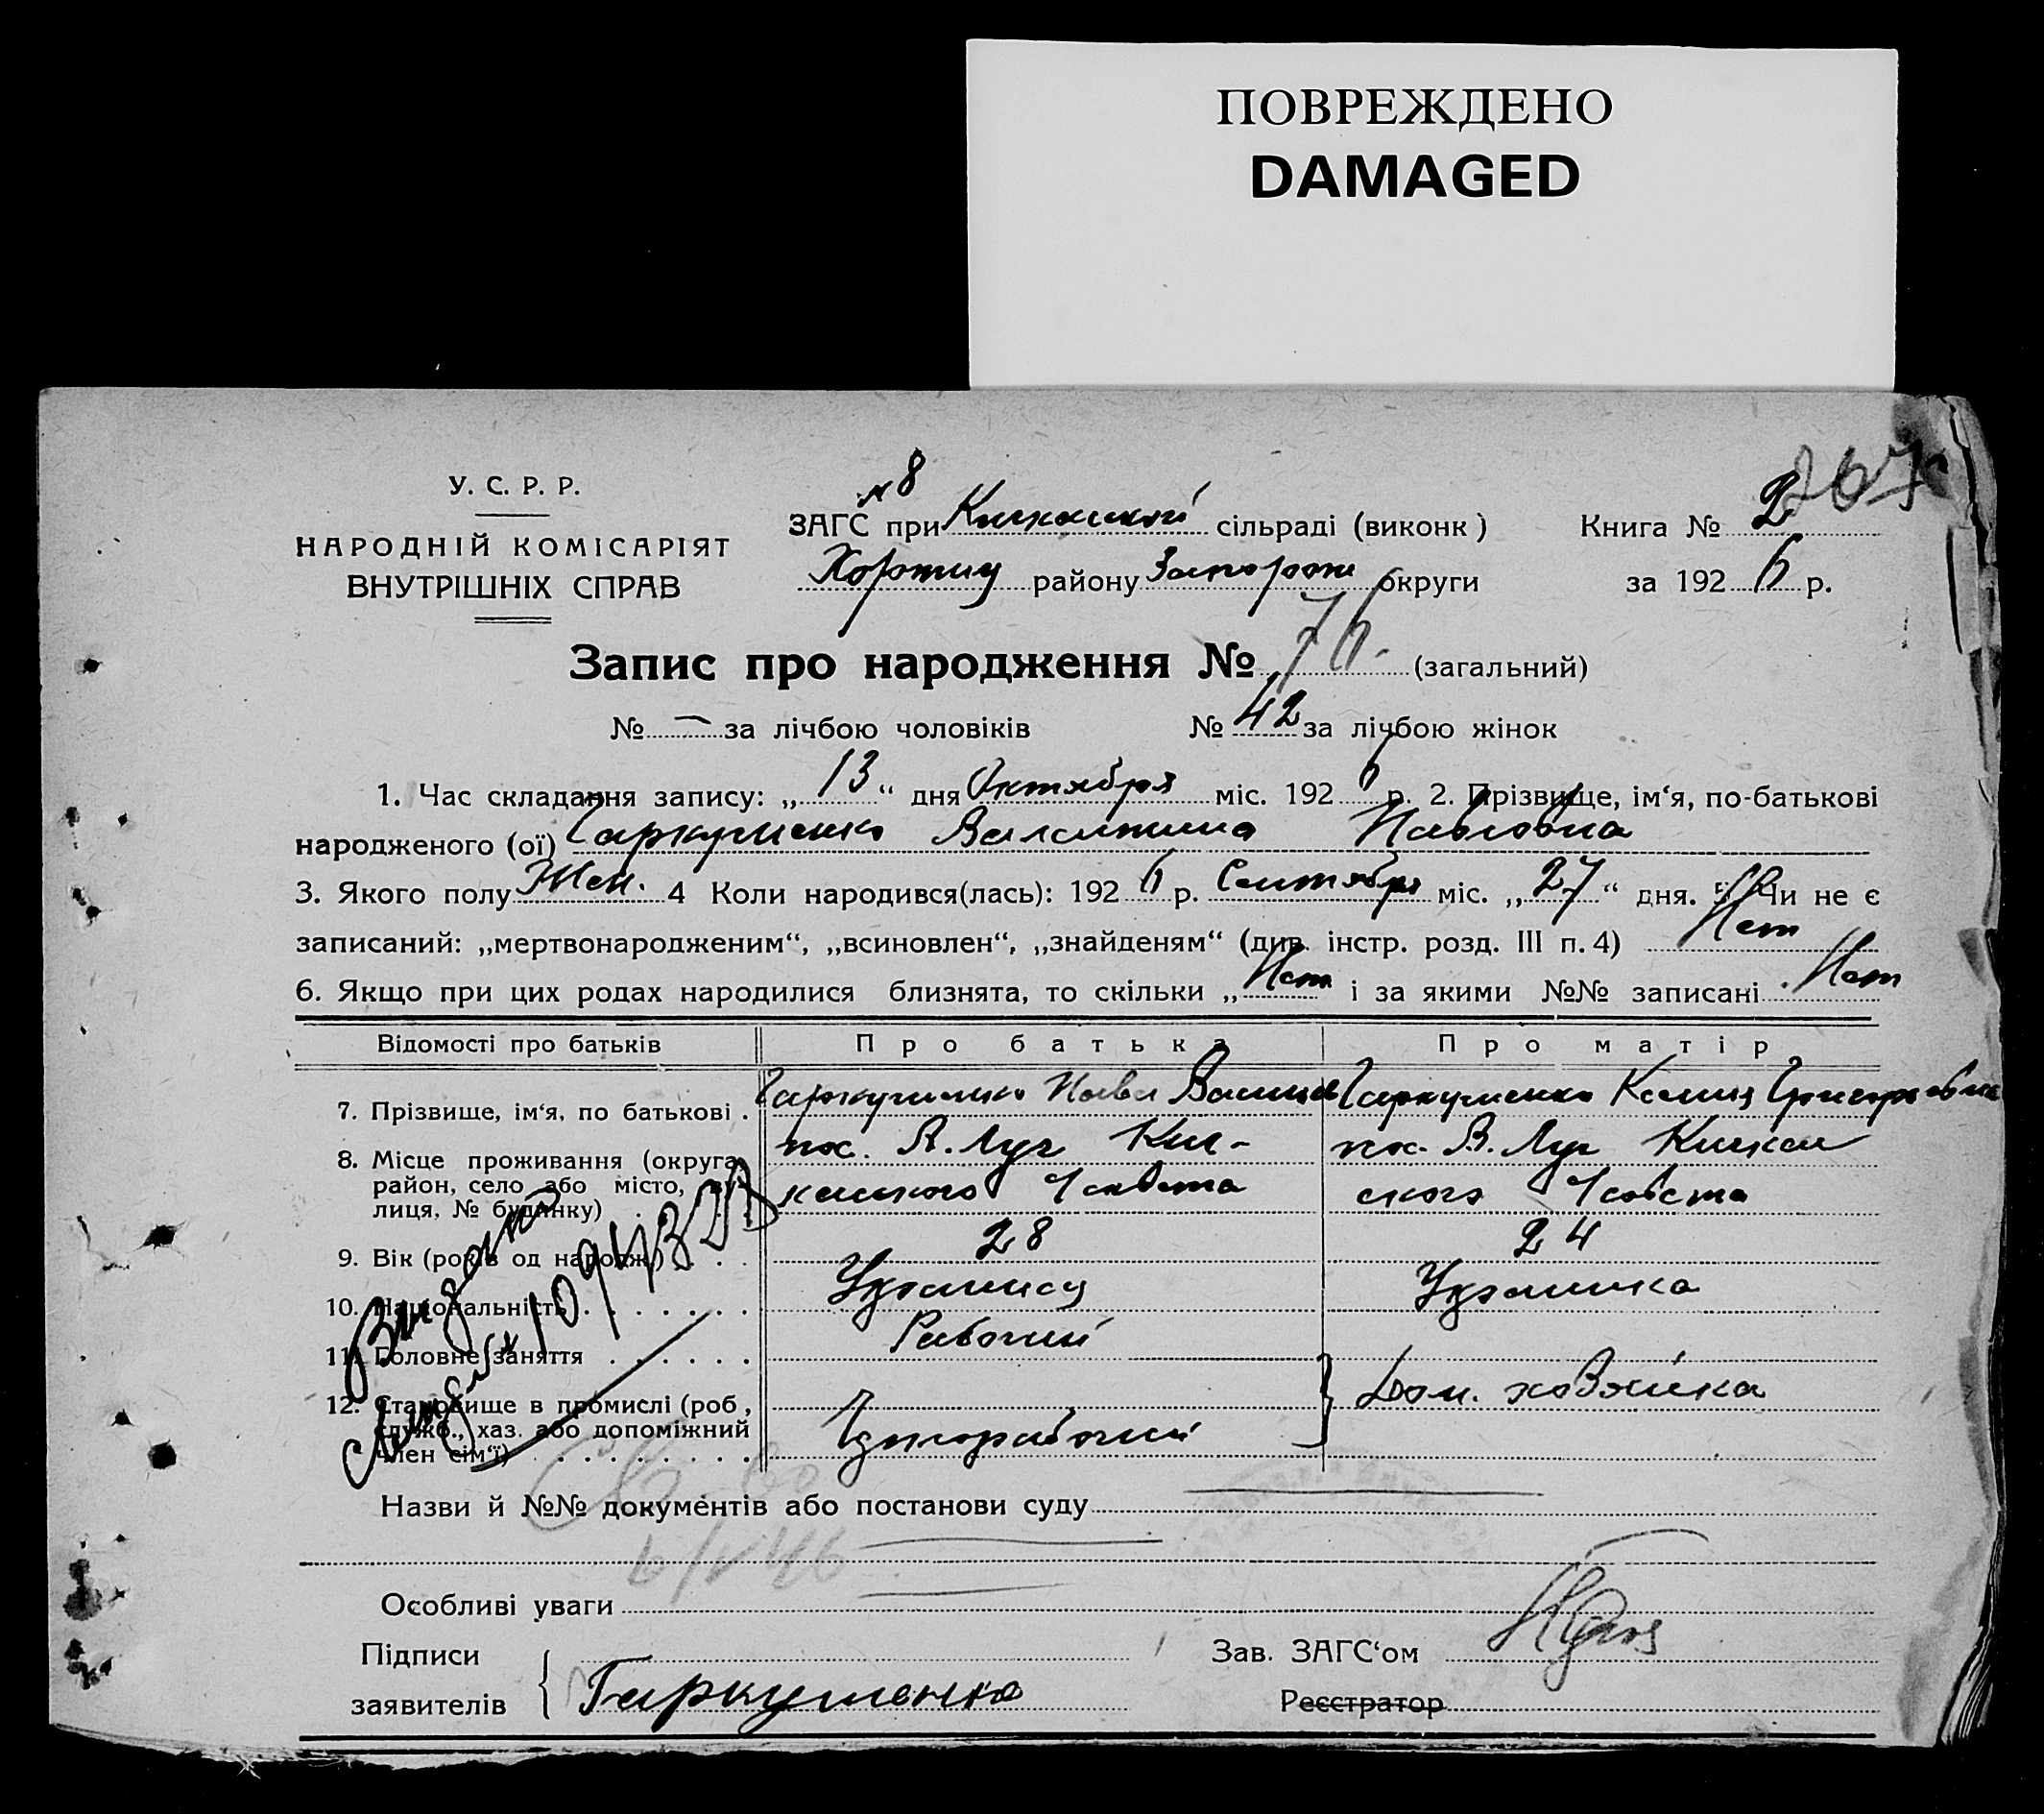 ПОВРЕЖДЕНО
DAMAGED
267
У. С. Р. Р.
НАРОДНІЙ КОМІСАРІЯТ
ВНУТРІШНІХ СПРАВ
№ 8
ЗАГС при Кичкасской сільраді (виконк) Книга № 2
Хортиц району Запорож округи за 1926 р.
Запис про народження № 76. (загальний)
№ — за лічбою чоловіків № 42 за лічбою жінок
1. Час складання запису: „13“ дня Октября міс. 1926 р. 2. Прізвище, ім‘я, по-батькові
народженого (ої) Гаркушенко Валентина Павловна
3. Якого полу Жен. 4 Коли народився(лась): 1926 р. Сентября міс. „27“ дня. 5. Чи не є
записаний: „мертвонародженим“, „всиновлен“, „знайденям“ (див. інстр. розд. III п. 4) Нет
6. Якщо при цих родах народилися близнята, то скільки „Нет і за якими №№ записані Нет
Відомості про батьків Про батька Про матір
7. Прізвище, ім‘я, по батькові . Гаркушенко Павел Василев Гаркушенко Григоровна
8. Місце проживання (округа, район, село або місто, вулиця, № будинку) пос. А. Луч Кичкасского с/совета пос. В. Луч Кичкасского с/совета
9. Вік (років од народж.) . . . 28 24
10. Національність . . . . . . . Украинец Украинка
11. Головне заняття . . . . . . Рабочий
12. Становище в промислі (роб., служб., хаз. або допоміжний член сім‘ї) . . . . . . . . Чернорабочий Дом. хозяйка
Назви й №№ документів або постанови суду
Особливі уваги
Підписи
заявителів Гаркушенко
Зав. ЗАГС‘ом
Реєстратор